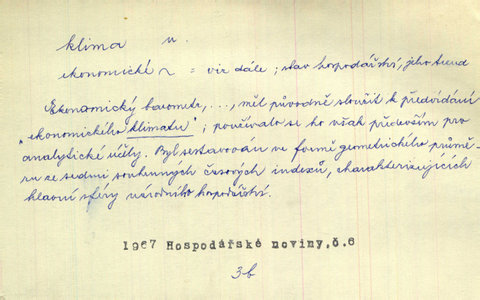 klima n.
ekonomické ~ = viz dále; stav hospodářství, jeho trend
Ekonomický barometr, ..., měl původně sloužit k předvídání
"ekonomického klimatu"; používalo se ho však především pro
analytické účely. Byl sestavován ve formě geometrického průmě-
ru ze sedmi souhrnných časových indexů, charakterizujících
hlavní sféry národního hospodářství.
1967 Hospodářské noviny,č.6
3b